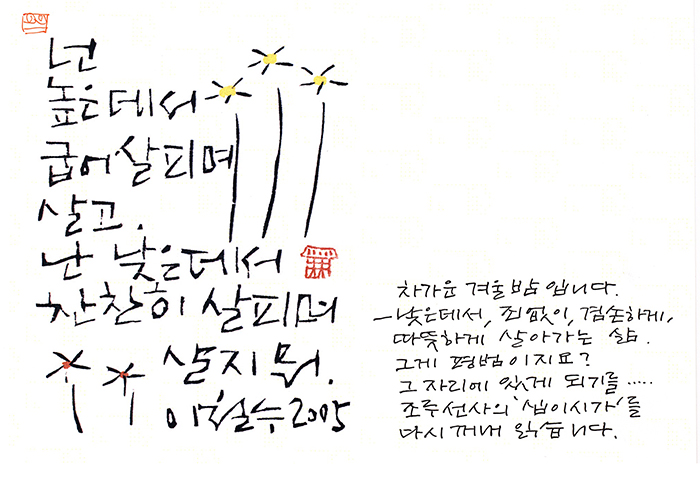 넌
높은데서
굽어살피며
살고.
난 낮은데서
찬찬히 살피며
살지 뭐.
이철수 2005
차가운 겨울밤입니다.
─낮은데서, 죄없이, 겸손하게,
따뜻하게 살아가는 삶.
그게 평범이지요?
그 자리에 있게 되기를.....
조주선사의 '십이시가'를
다시 꺼내 읽습니다.